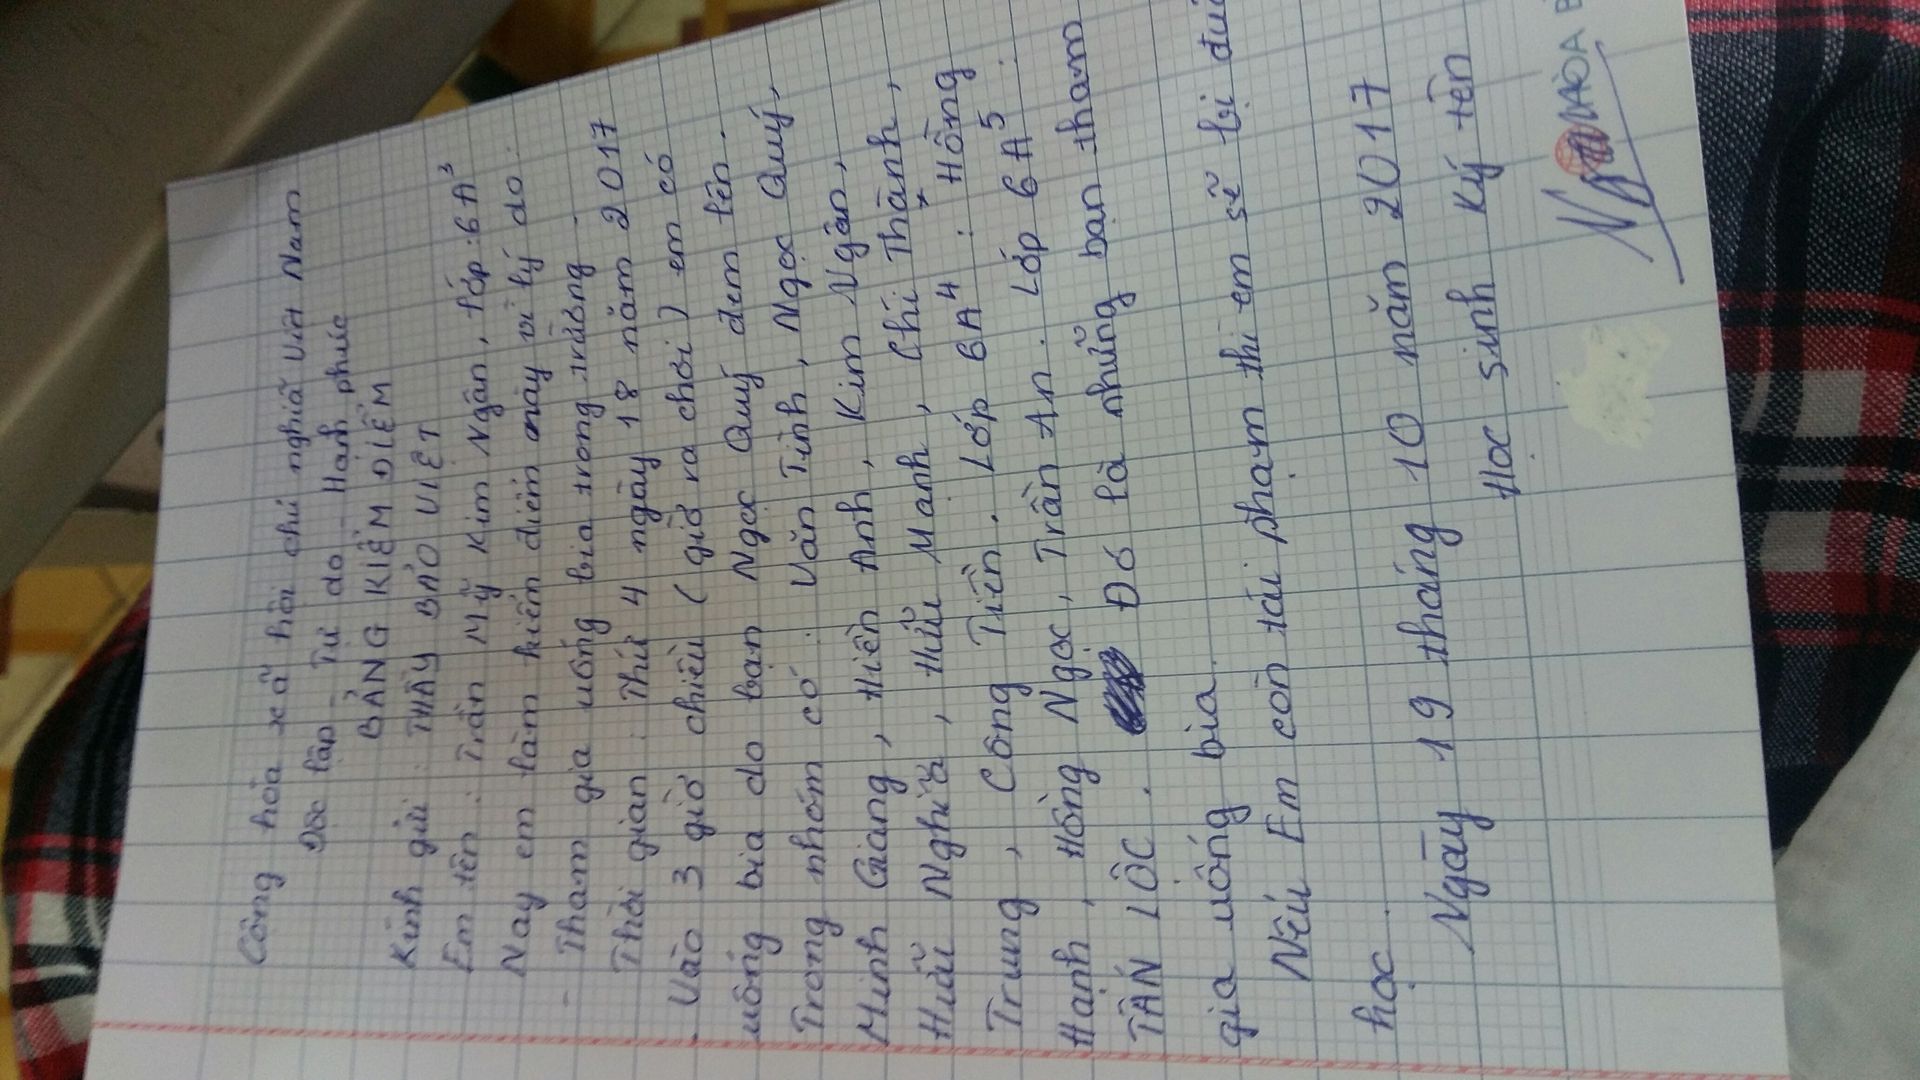 Cộng hòa xã hội chủ nghĩa Việt Nam
Độc lập - Tự do - Hạnh phúc
BẢNG KIỂM ĐIỂM
Kính gửi : THẦY BẢO VIỆT
Em tên : Trần Mỹ Kim Ngân, lớp : 6A³
Nay em làm kiểm điểm này vì lý do :
- Tham gia uống bia trong trường .
Thời gian : Thứ 4 ngày 18 năm 2017
- Vào 3 giờ chiều ( giờ ra chơi ) em có
uống bia do bạn Ngọc Quý đem lên .
Trong nhóm có : Văn Tình, Ngọc Quý,
Minh Giang, Hiền Anh, Kim Ngân,
Hữu Nghĩa, Hữu Mạnh, Chí Thành,
Trung, Công Tiền. Lớp 6A⁴ : Hồng
Hạnh, Hồng Ngọc, Trần An. Lớp 6A⁵ :
TẤN LỘC . Đó là những bạn tham
gia uống bia.
Nếu Em còn tái phạm thì em sẽ bị đuổi
học.
Ngày 19 tháng 10 năm 2017
Học sinh ký tên